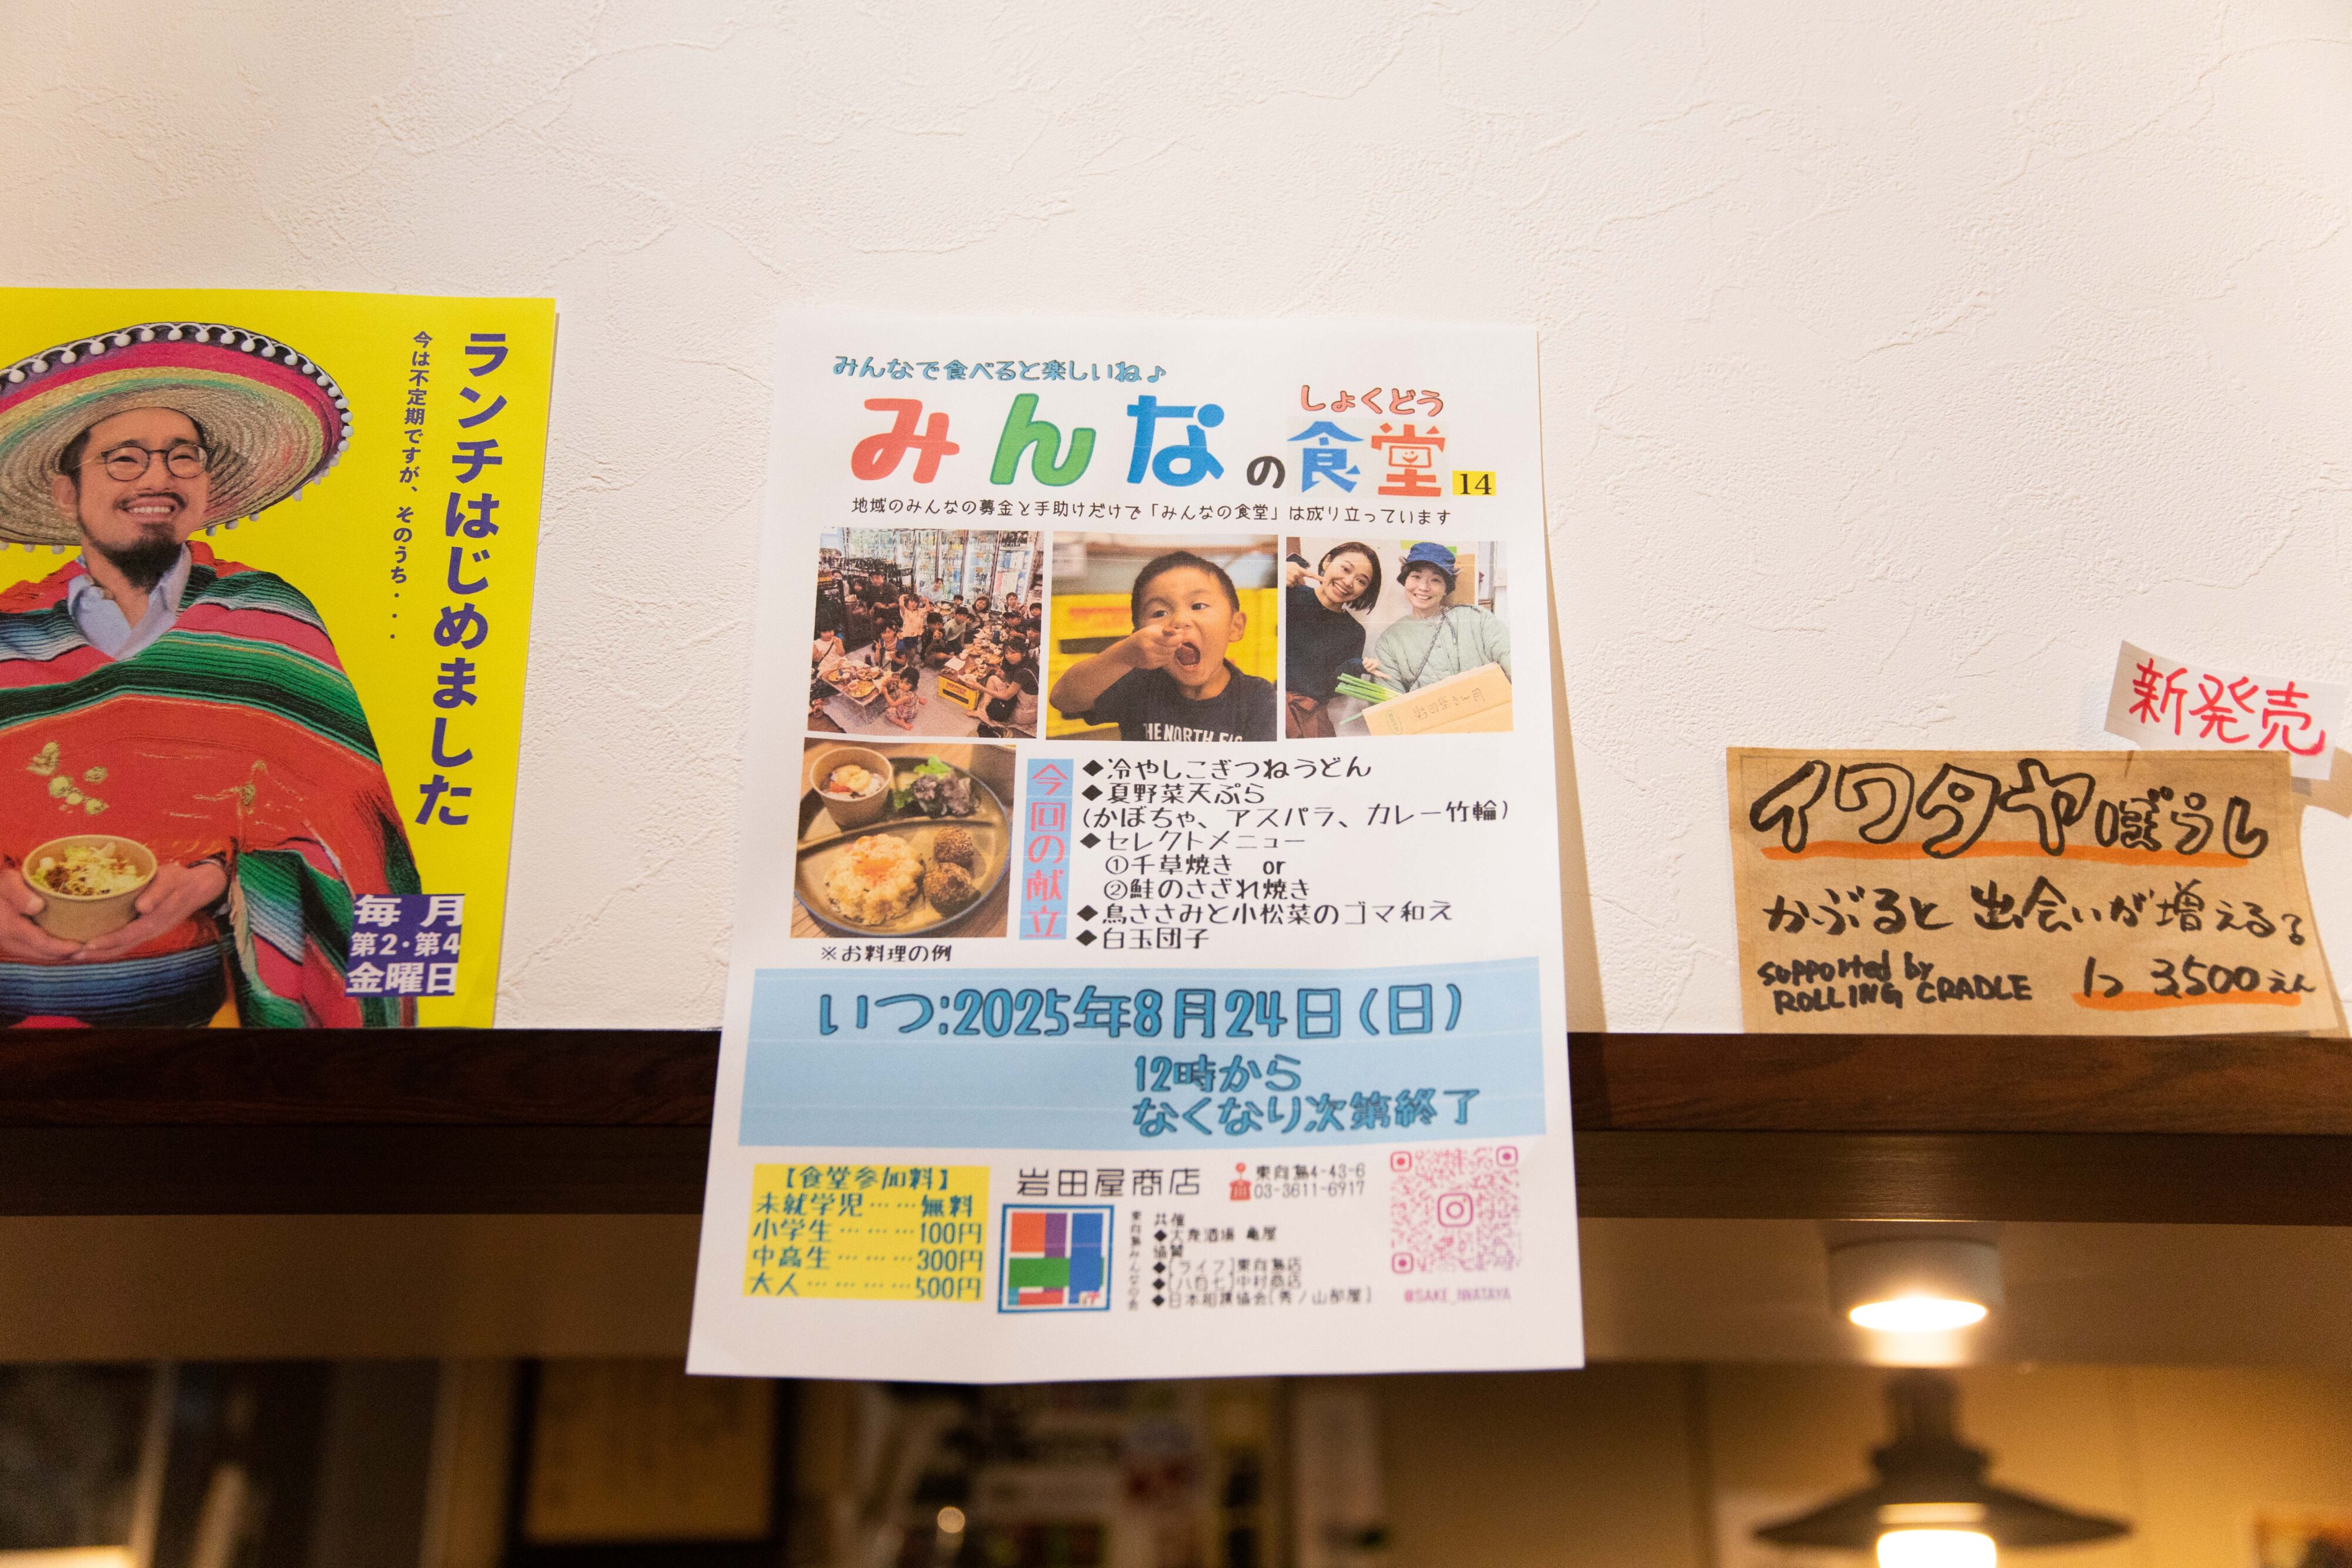 ランチはじめました
今は不定期ですが、そのうち・・・
毎月
第2・第4
金曜日
みんなで食べると楽しいね♪
しょくどう
みんなの食堂 14
地域のみんなの募金と手助けだけで「みんなの食堂」は成り立っています
THE NORTH
今回の献立
◆冷やしこぎつねうどん
◆夏野菜天ぷら
(かぼちゃ、アスパラ、カレー竹輪)
◆セレクトメニュー
①千草焼き or
②鮭のさざれ焼き
◆鳥ささみと小松菜のゴマ和え
◆白玉団子
※お料理の例
いつ:2025年8月24日(日)
12時から
なくなり次第終了
【食堂参加料】
未就学児……無料
小学生………100円
中高生………300円
大人…………500円
岩田屋商店
東向島4-43-6
03-3611-6917
東向島みんなの会
共催
◆大衆酒場 亀屋
協賛
◆[ライフ]東向島店
◆[八百七]中村商店
◆日本相撲協会[秀ノ山部屋]
@SAKE_IWATAYA
新発売
イワタヤぼうし
かぶると出会いが増える?
supported by
ROLLING CRADLE
1つ 3,500えん